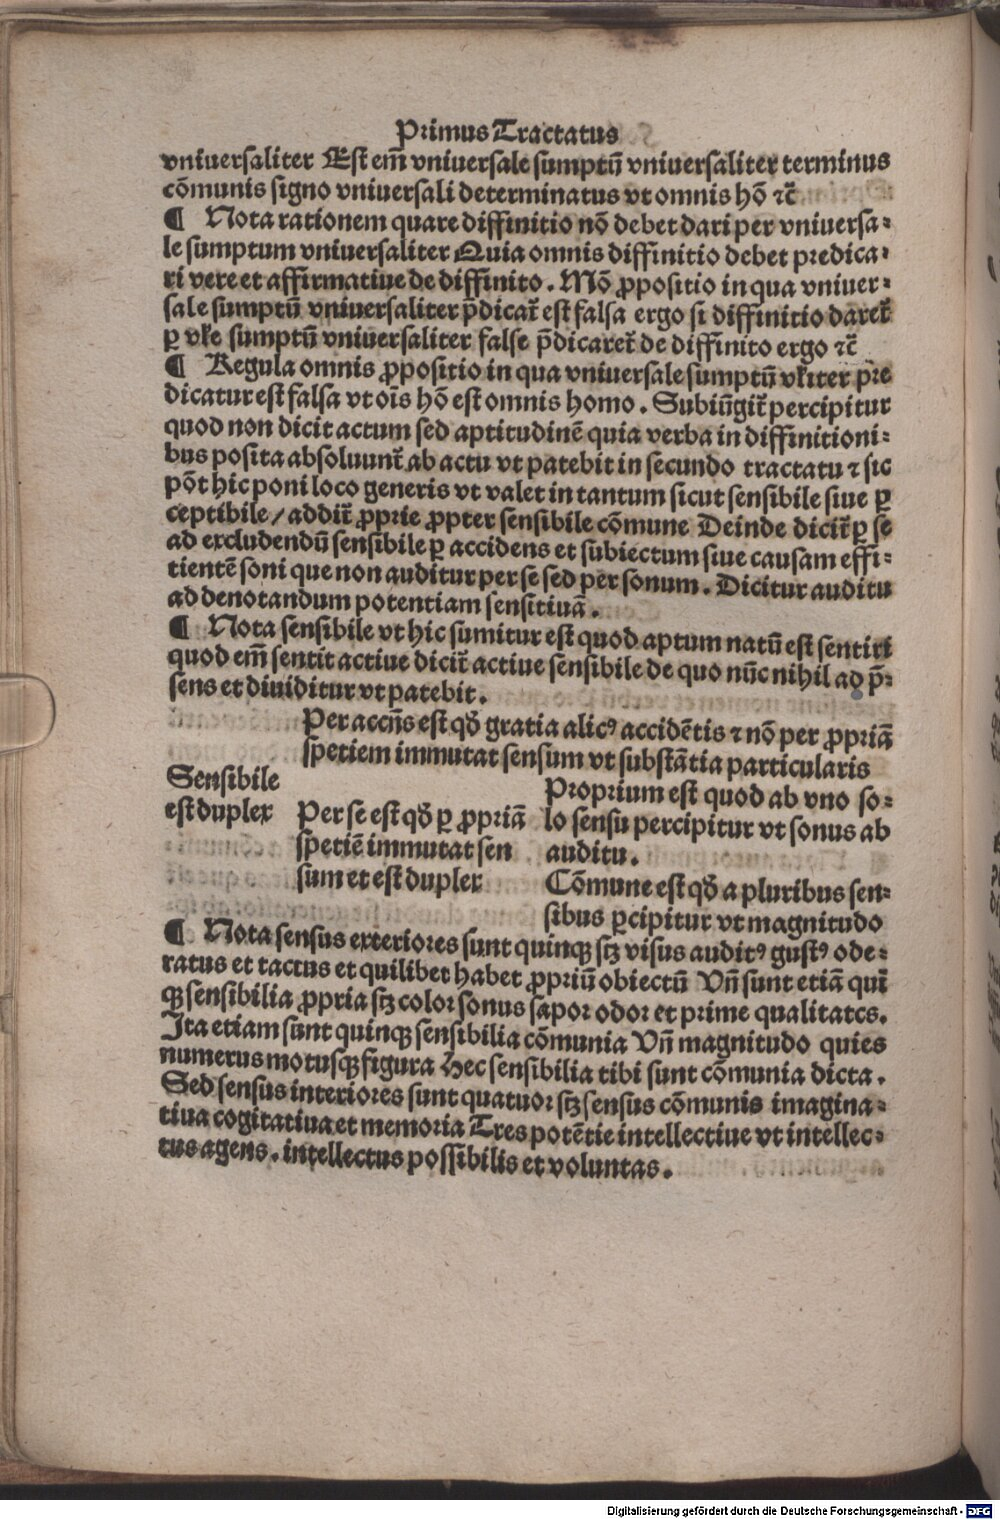 Primus Tractatus
vniuersaliter Est em̄ vniuersale sumptū vniuersaliter terminus
cōmunis signo vniuersali determinatus vt omnis hō ⁊c̄
¶ Nota rationem quare diffinitio nō debet dari per vniuersa⸗
le sumptum vniuersaliter Quia omnis diffinitio debet predica⸗
ri vere et affirmatiue de diffinito. Mō ꝓpositio in qua vniuer⸗
sale sumptū vniuersaliter p̄dicat᷑ est falsa ergo si diffinitio daret᷑
ꝑ vłe sumptū vniuersaliter false p̄dicaret᷑ de diffinito ergo ⁊c̄
¶ Regula omnis ꝓpositio in qua vniuersale sumptū vłiter pre
dicatur est falsa vt oīs hō est omnis homo. Subiūgit᷑ percipitur
quod non dicit actum sed aptitudinē quia verba in diffinitioni⸗
bus posita absoluunt᷑ ab actu vt patebit in secundo tractatu ⁊ sic
pōt hic poni loco generis vt valet in tantum sicut sensibile siue ꝑ
ceptibile/ addit᷑ ꝓprie ꝓpter sensibile cōmune Deinde dicit᷑ ꝑ se
ad excludendū sensibile ꝑ accidens et subiectum siue causam effi⸗
tientē soni que non auditur per se sed per sonum. Dicitur auditu
ad denotandum potentiam sensitiuā.
¶ Nota sensibile vt hic sumitur est quod aptum natū est sentiri
quod em̄ sentit actiue dicit᷑ actiue sensibile de quo nūc nihil ad p̄⸗
sens et diuiditur vt patebit.
Per accn̄s est qd̄ gratia alicꝰ accidētis ⁊ nō per ꝓpriā
spetiem immutat sensum vt substātia particularis
Sensibile
est duplex
Per se est qd̄ ꝑ ꝓpriā
spetiē immutat sen
sum et est duplex
Proprium est quod ab vno so⸗
lo sensu percipitur vt sonus ab
auditu.
Cōmune est qd̄ a pluribus sen⸗
sibus ꝑcipitur vt magnitudo
¶ Nota sensus exteriores sunt quinqꝫ sꝫ visus auditꝰ gustꝰ odo⸗
ratus et tactus et quilibet habet ꝓpriū obiectū Vn̄ sunt etiā quī
qꝫ sensibilia ꝓpria sꝫ color sonus sapor odor et prime qualitates.
Ita etiam sunt quinqꝫ sensibilia cōmunia Vn̄ magnitudo quies
numerus motusqꝫ figura Hec sensibilia tibi sunt cōmunia dicta.
Sed sensus interiores sunt quatuor sꝫ sensus cōmunis imagina⸗
tiua cogitatiua et memoria Tres potētie intellectiue vt intellec⸗
tus agens. intellectus possibilis et voluntas.
Digitalisierung gefördert durch die Deutsche Forschungsgemeinschaft - DFG